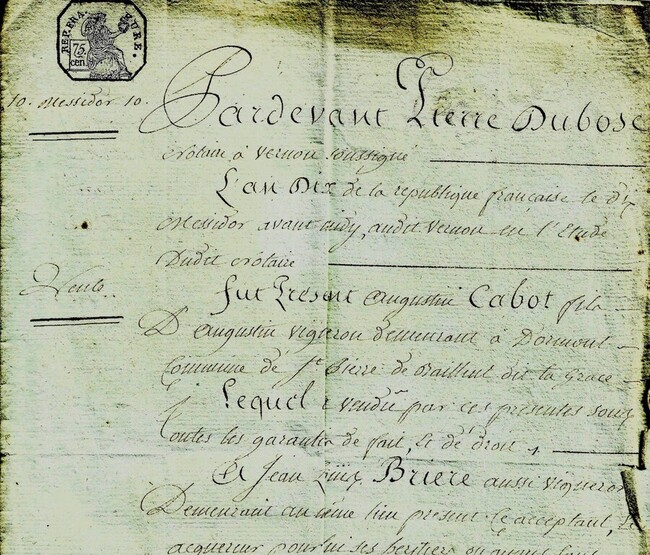 REP. FRA. EURE.
75
cen.
10. Messidor 10.
Pardevant Pierre Dubosc
Notaire à Vernon soussigné
L'an Dix de la republique française le dix
Messidor avant midy, audit Vernon en l'Etude
Dudit Notaire
Vente
fut Présent augustin Cabot fils
D'augustin vigneron demeurant à Dormont
Commune de St Pierre de
Lequel a vendu par ces presentes sous
toutes les garanties de fait, et de droit
A Jean Louis Briere aussi vigneron
Demeurant au même lieu present et acceptant,
acquereur pour lui ses heritiers ou ayant